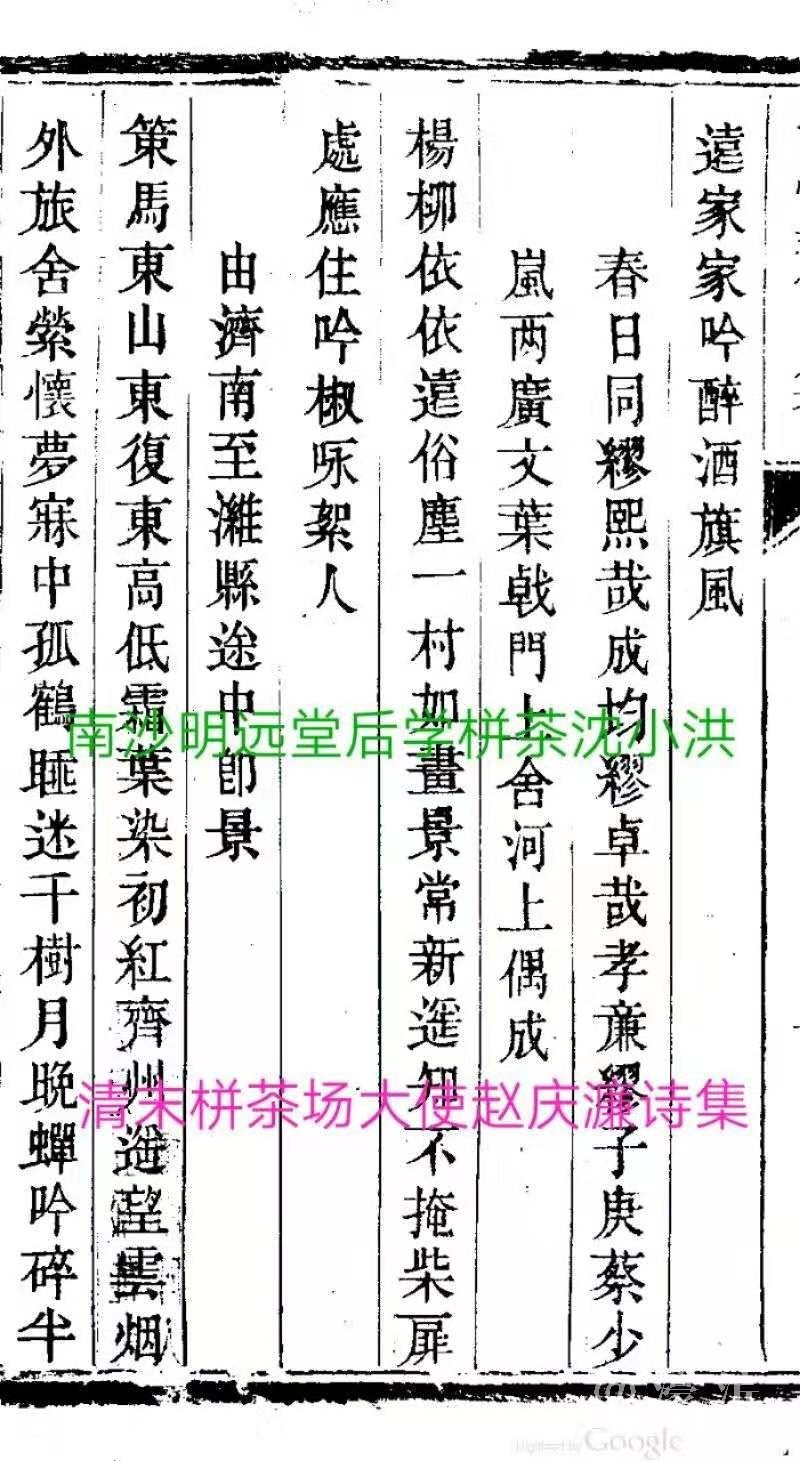 遠家家吟醉酒旗風
春日同繆熙哉成均繆卓哉孝亷繆子庚蔡少
嵐两廣文葉戟門上舍河上偶成
楊栁依依遠俗塵一村如畫景常新遥知不掩柴扉
處應住吟椒咏絮人
由濟南至濰縣途中卽景
策馬東山東復東高低霜葉染初紅齊州遥望雲烟
外旅舍縈懷夢寐中孤鶴睡迷千樹月晚蟬吟碎半
南沙明远堂后学栟茶沈小洪
清末栟茶场大使赵庆濂诗集
Digitized by Google